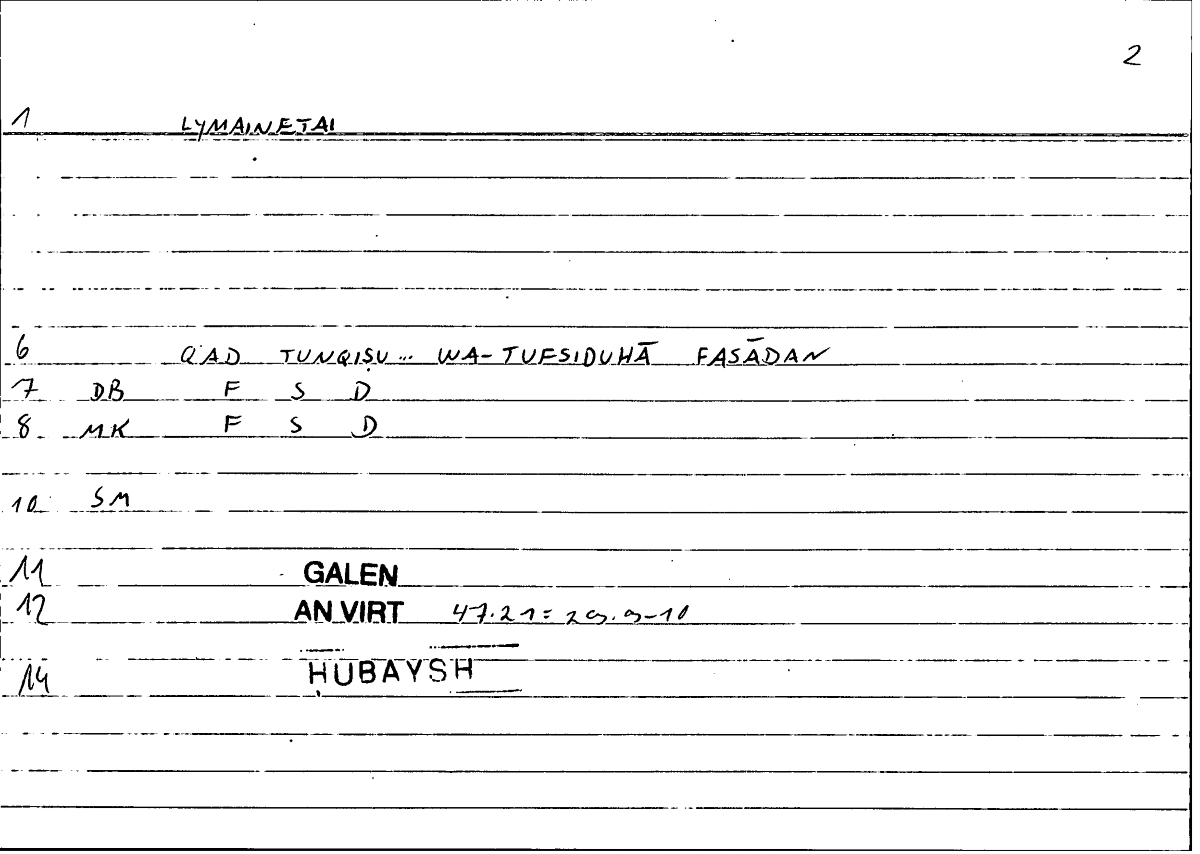 2
1 LYMAINETAI
6 QAD TUNQIṢU... WA-TUFSIDUHĀ FASĀDAN
7 DB F S D
8 MK F S D
10 SM
11 GALEN
12 AN VIRT 47.21 = 29.9-10
14 ḤUBAYSH